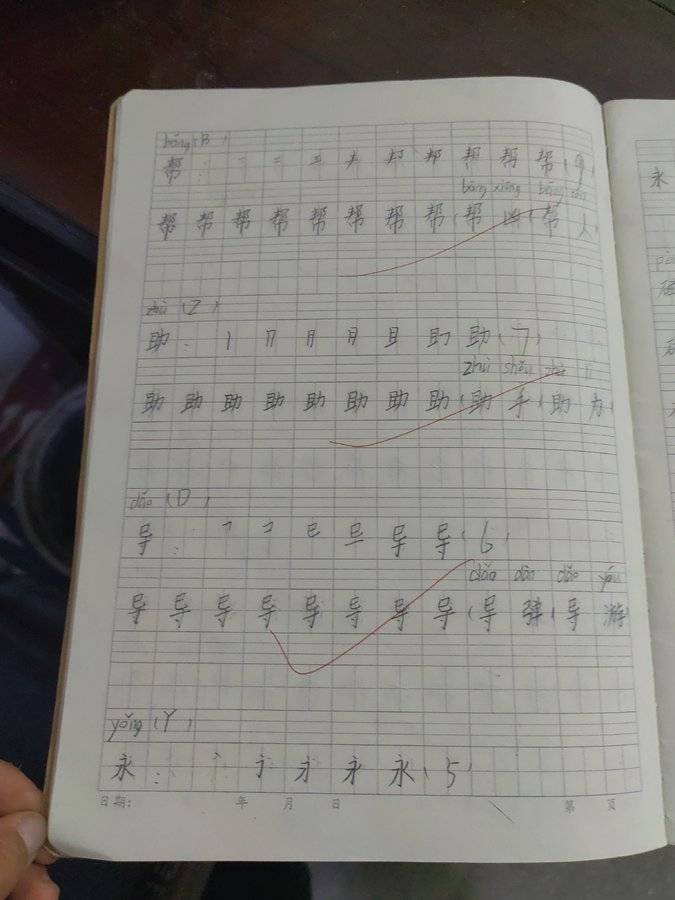 bāng(B)
帮: 一 二 三 丰 邦 邦 帮 帮 帮(9)
bāng xiōng bāng rén
帮 帮 帮 帮 帮 帮 帮 帮(帮 凶(帮 人
zhù(Z)
助: 丨 冂 月 月 且 助 助(7)
zhù shǒu zhù lì
助 助 助 助 助 助 助 助(助 手(助 力
dǎo(D)
导: ㄱ コ 巳 导 导(6)
dǎo dàn dǎo yóu
导 导 导 导 导 导 导 导(导 弹(导 游
yǒng(Y)
永: 丶 永 永(5)
日期: 年 月 日 第 页
永